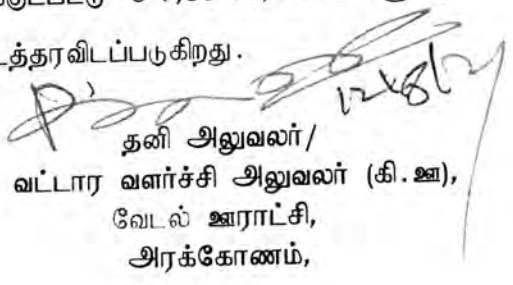 உத்தரவிடப்படுகிறது.
12/8/12
தனி அலுவலர்/
வட்டார வளர்ச்சி அலுவலர் (கி.ஊ),
வேடல் ஊராட்சி,
அரக்கோணம்,